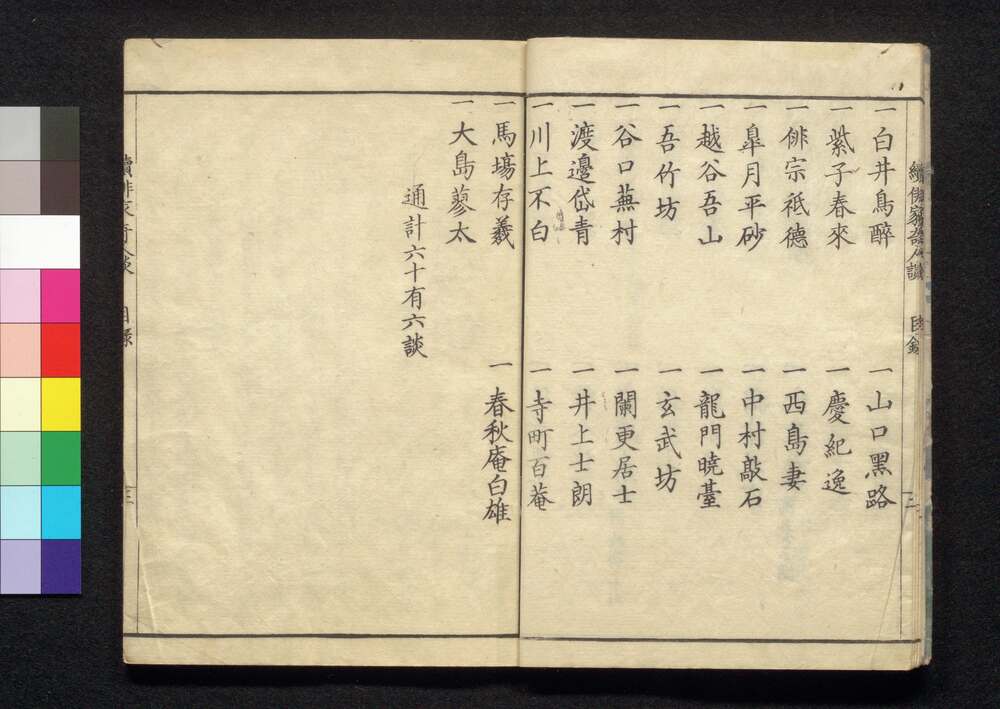 續俳家奇人談 目錄 三
一白井鳥醉
一山口黑路
一紫子春來
一慶紀逸
一俳宗祇德
一西島妻
一皐月平砂
一中村敲石
一越谷吾山
一龍門曉臺
一吾竹坊
一玄武坊
一谷口蕪村
一闌更居士
一渡邊岱青
一井上士朗
一川上不白
一寺町百菴
一馬塲存義
一春秋庵白雄
一大島蓼太
通計六十有六談
目錄
三